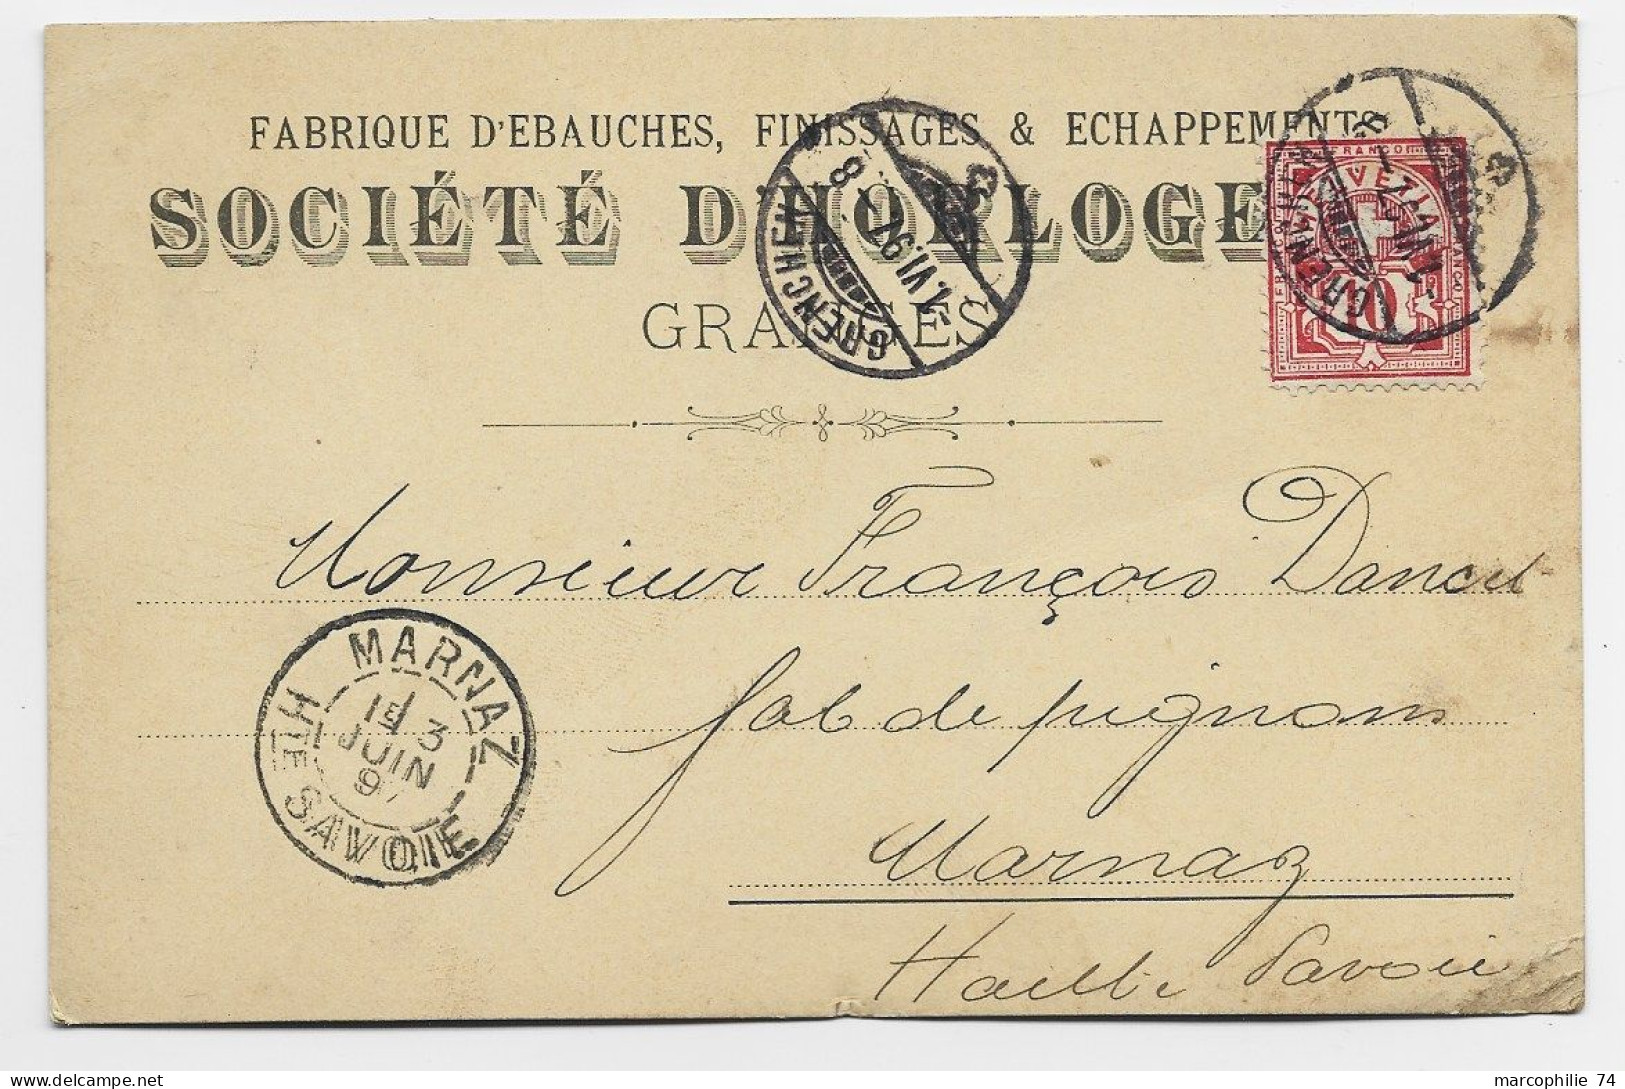 FABRIQUE D'EBAUCHES, FINISSAGES & ECHAPPEMENTS
SOCIÉTÉ D'HORLOGE
GRANGES
GRENCHEN
1.VI.97.-8
GRENCHEN
FRANCO
HELVETIA
10
Monsieur François Dancet
fab de pignons
Marnaz
Haute Savoie
MARNAZ
3
JUIN
97
HTE SAVOIE
marcophilie 74